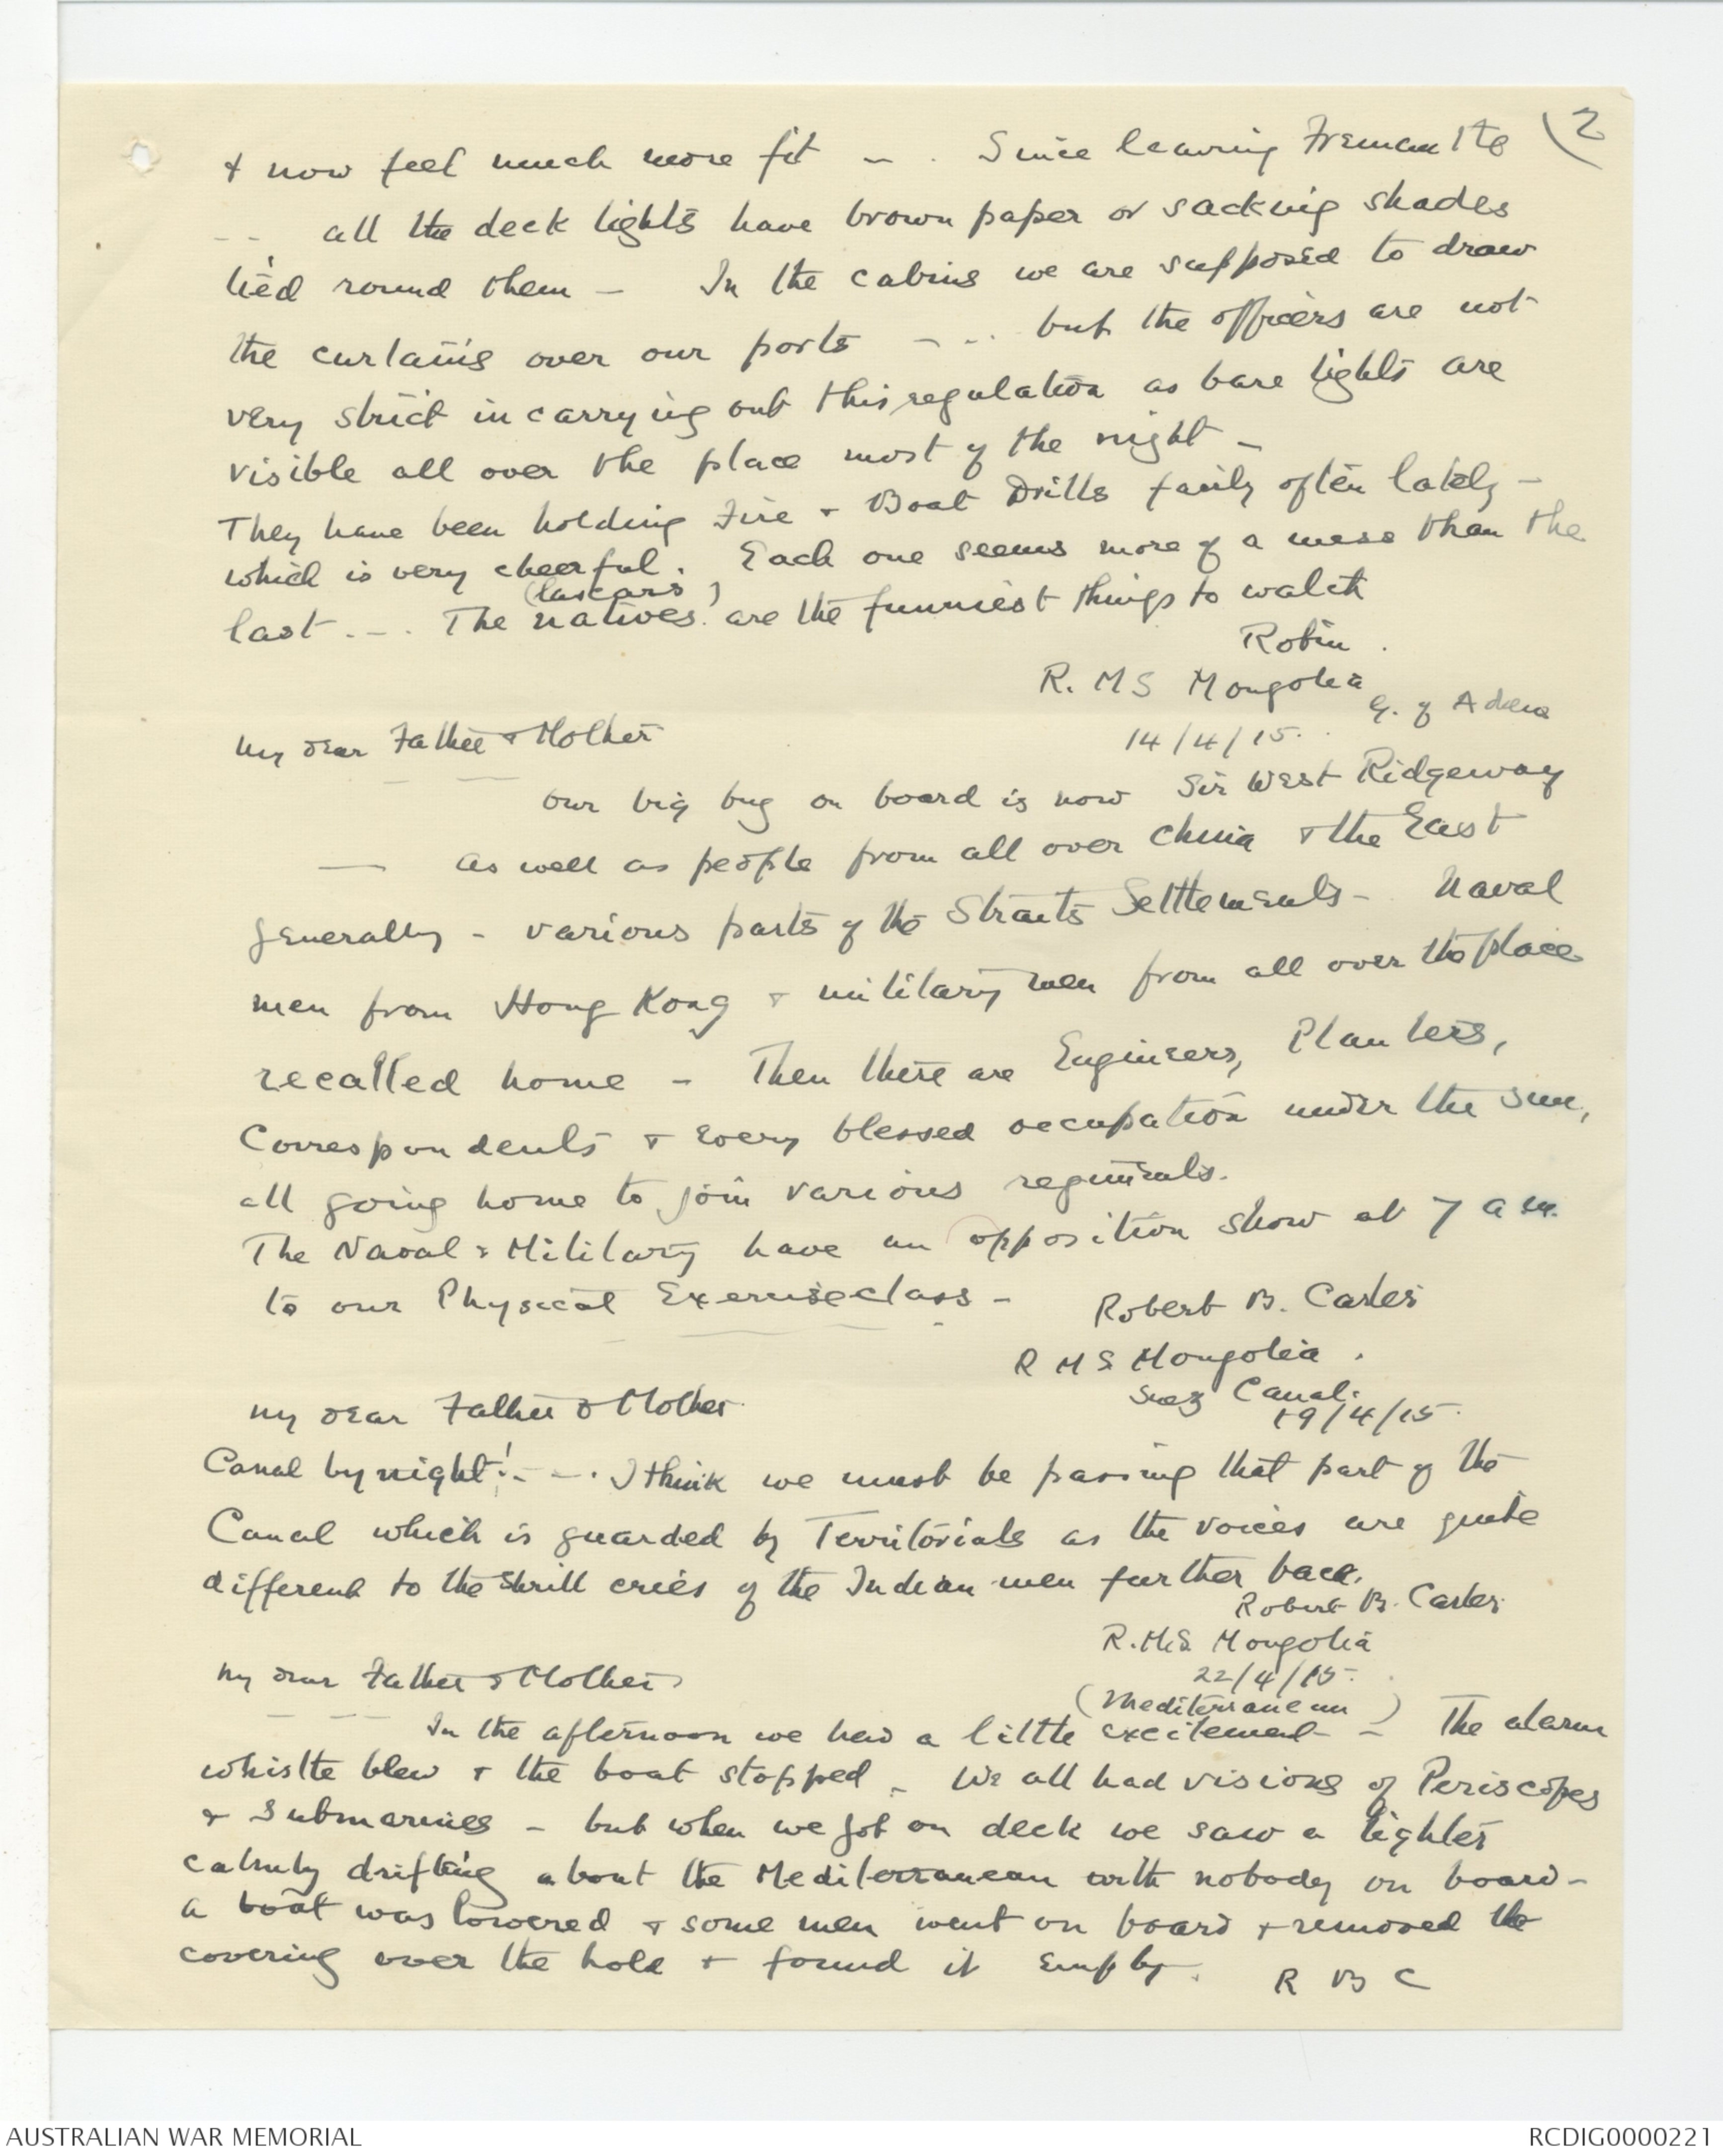 (2
& now feel much more fit - . Since leaving Fremantle
-- all the deck lights have brown paper or sacking shades
tied round them - In the cabins we are supposed to draw
the curtains over our ports - ... but the officers are not
very strict in carrying out this regulation as bare lights are
visible all over the place most of the night -
They have been holding Fire & Boat Drills fairly often lately -
which is very cheerful. Each one seems more of a mess than the
last . -. The natives (lascars) are the funniest things to watch
Robin.
R.MS Mongolia
G. of Aden
14/4/15.
My dear Father & Mother
Our big bug on board is now Sir West Ridgeway
— as well as people from all over China & the East
generally - various parts of the Straits Settlements - Naval
men from Hong Kong & military men from all over the place
recalled home - Then there are Engineers, Planters,
Correspondents & every blessed occupation under the sun,
all going home to join various regiments.
The Naval & Military have an opposition show at 7 am.
to our Physical Exercise class -
Robert B. Carter
R M S Mongolia.
Suez Canal.
19/4/15.
My dear Father & Mother
Canal by night! - - . I think we must be passing that part of the
Canal which is guarded by Territorials as the voices are quite
different to the shrill cries of the Indian men further back.
Robert B. Carter
R.M.S Mongolia
22/4/15.
(Mediterranean)
My dear Father & Mother
In the afternoon we had a little excitement - The alarm
whistle blew & the boat stopped - We all had visions of Periscopes
& Submarines - but when we got on deck we saw a lighter
calmly drifting about the Mediterranean with nobody on board -
a boat was lowered & some men went on board & removed the
covering over the hold & found it empty.
R B C
AUSTRALIAN WAR MEMORIAL
RCDIG0000221